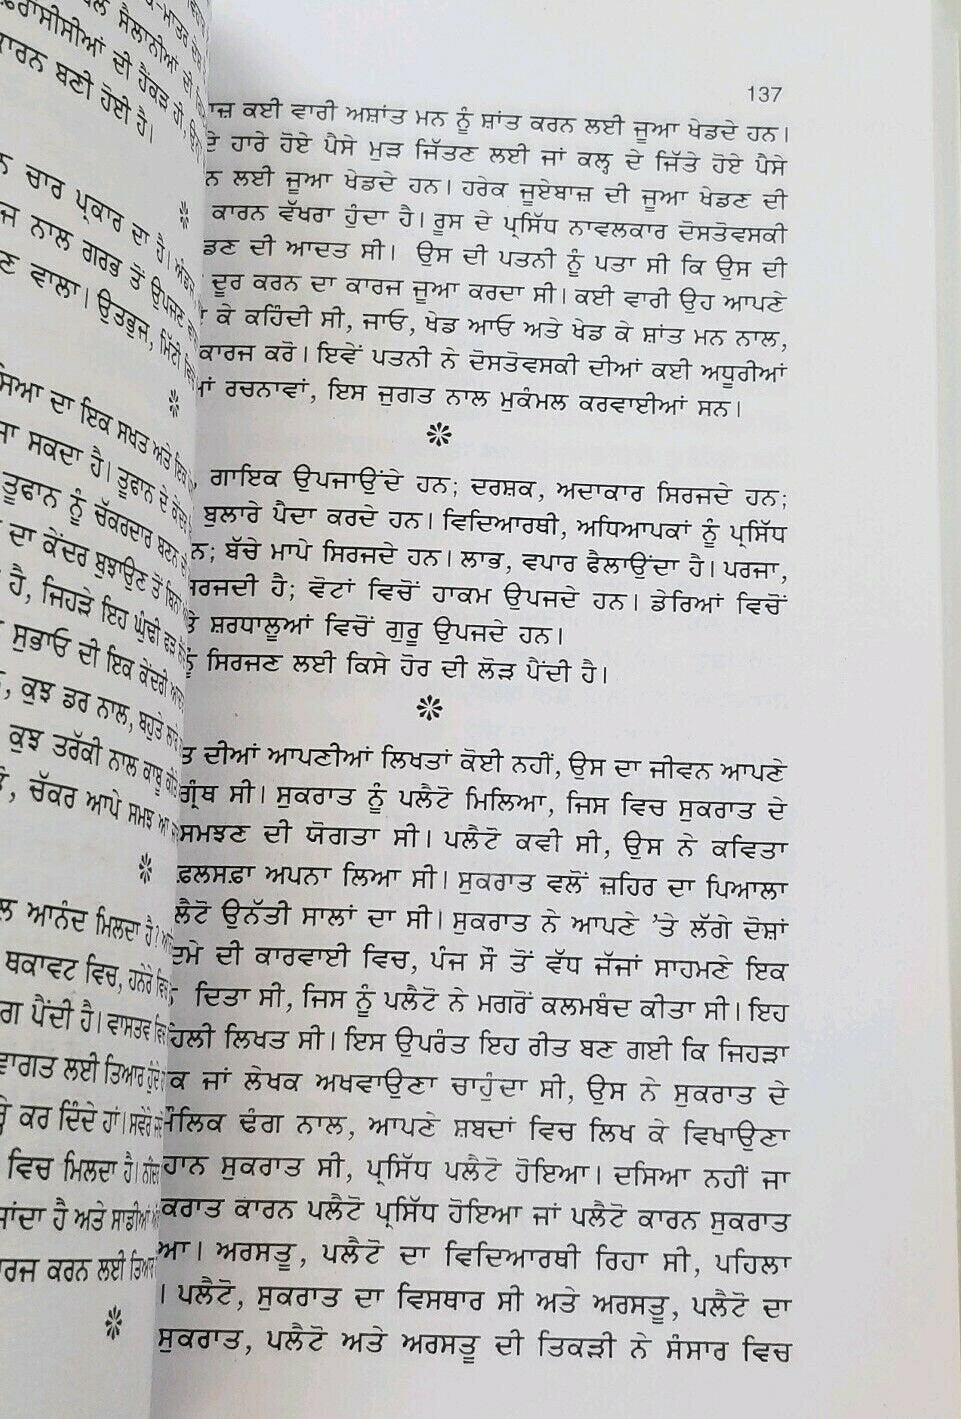 ਕਾਰਨ ਬਣੀ ਹੋਈ ਹੈ।
ਚਾਰ ਪ੍ਰਕਾਰ ਦਾ ਹੈ।
ਨਾਲ ਗਰਭ ਤੋਂ ਉਪਜਣ
ਵਾਲਾ। ਉਤਭੁਜ, ਮਿੱਟੀ
ਦਾ ਇਕ ਸਖਤ ਅਤੇ
ਜਾ ਸਕਦਾ ਹੈ। ਤੂਫਾਨ ਦੇ ਕੇਂਦਰ
ਤੂਫਾਨ ਨੂੰ ਚੱਕਰਦਾਰ ਬਣਨ
ਦਾ ਕੇਂਦਰ ਬੁਝਾਉਣ ਤੋਂ ਬਿਨਾਂ
ਹੈ, ਜਿਹੜੇ ਇਹ ਘੁੰਢੀ ਫੜ
ਸੁਭਾਓ ਦੀ ਇਕ ਕੇਂਦਰੀ
ਕੁਝ ਡਰ ਨਾਲ, ਬਹੁਤੇ
ਕੁਝ ਤਰੱਕੀ ਨਾਲ ਕਾਬੂ
ਚੱਕਰ ਆਪੇ ਸਮਝ ਆ
ਆਨੰਦ ਮਿਲਦਾ ਹੈ?
ਥਕਾਵਟ ਵਿਚ, ਹਨੇਰੇ
ਪੈਂਦੀ ਹੈ। ਵਾਸਤਵ ਵਿਚ
ਲਈ ਤਿਆਰ ਹੁੰਦੇ
ਕਰ ਦਿੰਦੇ ਹਾਂ। ਸਵੇਰੇ
ਵਿਚ ਮਿਲਦਾ ਹੈ।
ਜਾਂਦਾ ਹੈ ਅਤੇ ਸਾਡੀਆਂ
ਕਰਨ ਲਈ ਤਿਆਰ
137
ਕਈ ਵਾਰੀ ਅਸ਼ਾਂਤ ਮਨ ਨੂੰ ਸ਼ਾਂਤ ਕਰਨ ਲਈ ਜੂਆ ਖੇਡਦੇ ਹਨ।
ਹਾਰੇ ਹੋਏ ਪੈਸੇ ਮੁੜ ਜਿੱਤਣ ਲਈ ਜਾਂ ਕਲ੍ਹ ਦੇ ਜਿੱਤੇ ਹੋਏ ਪੈਸੇ
ਲਈ ਜੂਆ ਖੇਡਦੇ ਹਨ। ਹਰੇਕ ਜੂਏਬਾਜ਼ ਦੀ ਜੂਆ ਖੇਡਣ ਦੀ
ਕਾਰਨ ਵੱਖਰਾ ਹੁੰਦਾ ਹੈ। ਰੂਸ ਦੇ ਪ੍ਰਸਿੱਧ ਨਾਵਲਕਾਰ ਦੋਸਤੋਵਸਕੀ
ਦੀ ਆਦਤ ਸੀ। ਉਸ ਦੀ ਪਤਨੀ ਨੂੰ ਪਤਾ ਸੀ ਕਿ ਉਸ ਦੀ
ਦੂਰ ਕਰਨ ਦਾ ਕਾਰਜ ਜੂਆ ਕਰਦਾ ਸੀ। ਕਈ ਵਾਰੀ ਉਹ ਆਪਣੇ
ਕੇ ਕਹਿੰਦੀ ਸੀ, ਜਾਓ, ਖੇਡ ਆਓ ਅਤੇ ਖੇਡ ਕੇ ਸ਼ਾਂਤ ਮਨ ਨਾਲ,
ਕਾਰਜ ਕਰੋ। ਇਵੇਂ ਪਤਨੀ ਨੇ ਦੋਸਤੋਵਸਕੀ ਦੀਆਂ ਕਈ ਅਧੂਰੀਆਂ
ਰਚਨਾਵਾਂ, ਇਸ ਜੁਗਤ ਨਾਲ ਮੁਕੰਮਲ ਕਰਵਾਈਆਂ ਸਨ।
ਗਾਇਕ ਉਪਜਾਉਂਦੇ ਹਨ; ਦਰਸ਼ਕ, ਅਦਾਕਾਰ ਸਿਰਜਦੇ ਹਨ;
ਬੁਲਾਰੇ ਪੈਦਾ ਕਰਦੇ ਹਨ। ਵਿਦਿਆਰਥੀ, ਅਧਿਆਪਕਾਂ ਨੂੰ ਪ੍ਰਸਿੱਧ
ਬੱਚੇ ਮਾਪੇ ਸਿਰਜਦੇ ਹਨ। ਲਾਭ, ਵਪਾਰ ਫੈਲਾਉਂਦਾ ਹੈ। ਪਰਜਾ,
ਹੈ; ਵੋਟਾਂ ਵਿਚੋਂ ਹਾਕਮ ਉਪਜਦੇ ਹਨ। ਡੇਰਿਆਂ ਵਿਚੋਂ
ਸ਼ਰਧਾਲੂਆਂ ਵਿਚੋਂ ਗੁਰੂ ਉਪਜਦੇ ਹਨ।
ਸਿਰਜਣ ਲਈ ਕਿਸੇ ਹੋਰ ਦੀ ਲੋੜ ਪੈਂਦੀ ਹੈ।
ਦੀਆਂ ਆਪਣੀਆਂ ਲਿਖਤਾਂ ਕੋਈ ਨਹੀਂ, ਉਸ ਦਾ ਜੀਵਨ ਆਪਣੇ
ਗ੍ਰੰਥ ਸੀ। ਸੁਕਰਾਤ ਨੂੰ ਪਲੈਟੋ ਮਿਲਿਆ, ਜਿਸ ਵਿਚ ਸੁਕਰਾਤ ਦੇ
ਸਮਝਣ ਦੀ ਯੋਗਤਾ ਸੀ। ਪਲੈਟੋ ਕਵੀ ਸੀ, ਉਸ ਨੇ ਕਵਿਤਾ
ਫ਼ਲਸਫ਼ਾ ਅਪਨਾ ਲਿਆ ਸੀ। ਸੁਕਰਾਤ ਵਲੋਂ ਜ਼ਹਿਰ ਦਾ ਪਿਆਲਾ
ਲੈਟੋ ਉਨੱਤੀ ਸਾਲਾਂ ਦਾ ਸੀ। ਸੁਕਰਾਤ ਨੇ ਆਪਣੇ ’ਤੇ ਲੱਗੇ ਦੋਸ਼ਾਂ
ਦਮੇ ਦੀ ਕਾਰਵਾਈ ਵਿਚ, ਪੰਜ ਸੌ ਤੋਂ ਵੱਧ ਜੱਜਾਂ ਸਾਹਮਣੇ ਇਕ
ਦਿਤਾ ਸੀ, ਜਿਸ ਨੂੰ ਪਲੈਟੋ ਨੇ ਮਗਰੋਂ ਕਲਮਬੰਦ ਕੀਤਾ ਸੀ। ਇਹ
ਹਿਲੀ ਲਿਖਤ ਸੀ। ਇਸ ਉਪਰੰਤ ਇਹ ਰੀਤ ਬਣ ਗਈ ਕਿ ਜਿਹੜਾ
ਕ ਜਾਂ ਲੇਖਕ ਅਖਵਾਉਣਾ ਚਾਹੁੰਦਾ ਸੀ, ਉਸ ਨੇ ਸੁਕਰਾਤ ਦੇ
ਮੌਲਿਕ ਢੰਗ ਨਾਲ, ਆਪਣੇ ਸ਼ਬਦਾਂ ਵਿਚ ਲਿਖ ਕੇ ਵਿਖਾਉਣਾ
ਹਾਨ ਸੁਕਰਾਤ ਸੀ, ਪ੍ਰਸਿੱਧ ਪਲੈਟੋ ਹੋਇਆ। ਦਸਿਆ ਨਹੀਂ ਜਾ
ਕਰਾਤ ਕਾਰਨ ਪਲੈਟੋ ਪ੍ਰਸਿੱਧ ਹੋਇਆ ਜਾਂ ਪਲੈਟੋ ਕਾਰਨ ਸੁਕਰਾਤ
ਆ। ਅਰਸਤੂ, ਪਲੈਟੋ ਦਾ ਵਿਦਿਆਰਥੀ ਰਿਹਾ ਸੀ, ਪਹਿਲਾ
। ਪਲੈਟੋ, ਸੁਕਰਾਤ ਦਾ ਵਿਸਥਾਰ ਸੀ ਅਤੇ ਅਰਸਤੂ, ਪਲੈਟੋ ਦਾ
ਸੁਕਰਾਤ, ਪਲੈਟੋ ਅਤੇ ਅਰਸਤੂ ਦੀ ਤਿਕੜੀ ਨੇ ਸੰਸਾਰ ਵਿਚ